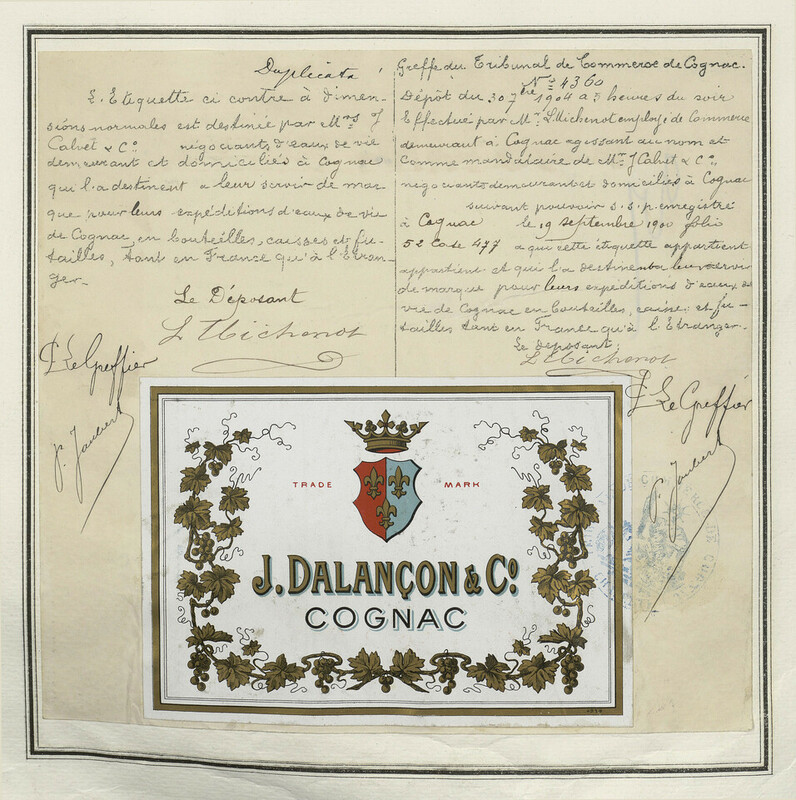 Duplicata
L'Etiquette ci contre à dimen-
sions normales est destinée par Mrs J
Calvet & Co negociants d'eaux de vie
demeurant et domiciliés à Cognac
qu'il a destinent a leur servir de mar
que pour leurs expéditions d'eaux de vie
de Cognac, en bouteilles, caisses et fu-
tailles, tant en France qu'à l'Etran-
ger-
Le Déposant
L Michenot
Le Greffier
P. Joubert
Greffe du Tribunal de Commerce de Cognac.
No 4360
Dépôt du 30 7bre 1904 a 3 heures du soir
Effectué par Mr L Michenot employé de Commerce
demeurant à Cognac agissant au nom et
comme mandataire de Mrs J Calvet & Co
negociants demeurant et domiciliés à Cognac
suivant pouvoir s.s.p. enregistré
à Cognac le 19 septembre 1900 folio
52 Case 477 a qui cette étiquette appartient
appartient et qui l'a destinent a leur servir
de marque pour leurs expéditions d'eaux de
vie de Cognac en bouteilles, caisses et fu-
tailles tant en France qu'à l'Etranger-
Le deposant
L Michenot
Le Greffier
P. Joubert
TRADE MARK
J. DALANÇON & Co
COGNAC